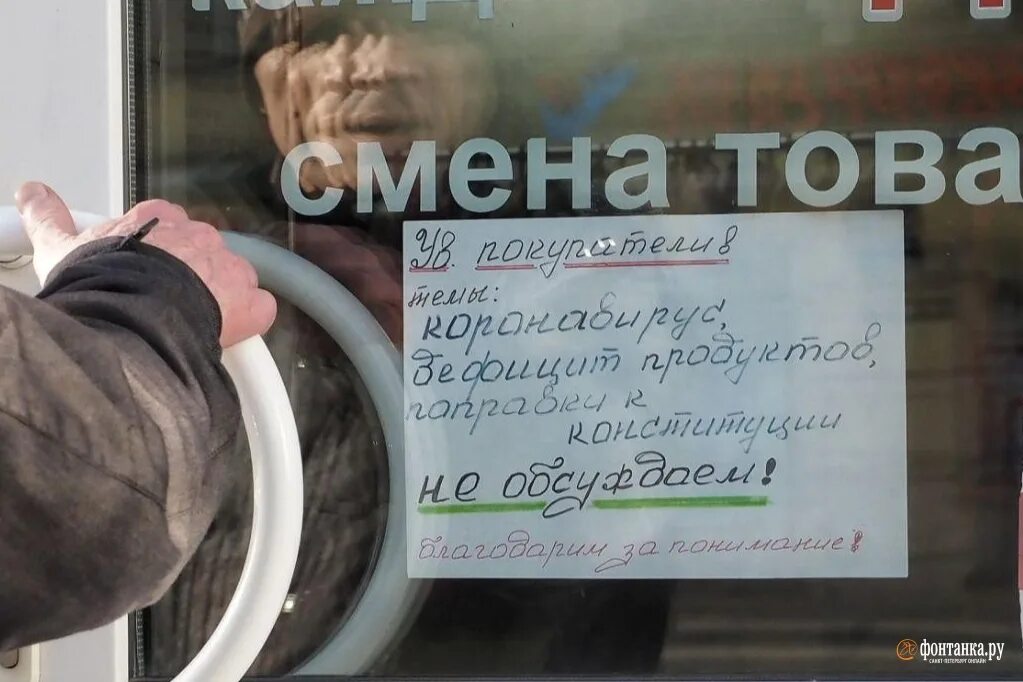 смена това
Ув. покупатели!
темы:
коронавирус,
дефицит продуктов,
поправки к
конституции
не обсуждаем!
благодарим за понимание!
фонтанка.ру
САНКТ-ПЕТЕРБУРГ ОНЛАЙН